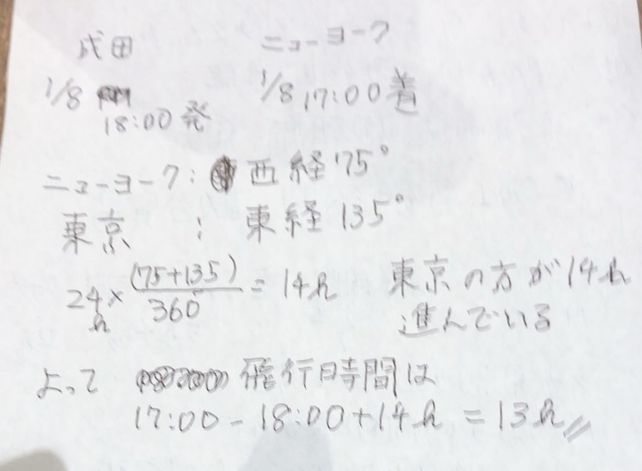 成田 ニューヨーク
1/8 18:00発 1/8 17:00着
ニューヨーク: 西経75°
東京 : 東経135°
24h×(75+135)/360 = 14h 東京の方が14h
進んでいる
よって 飛行時間は
17:00-18:00+14h=13h〃